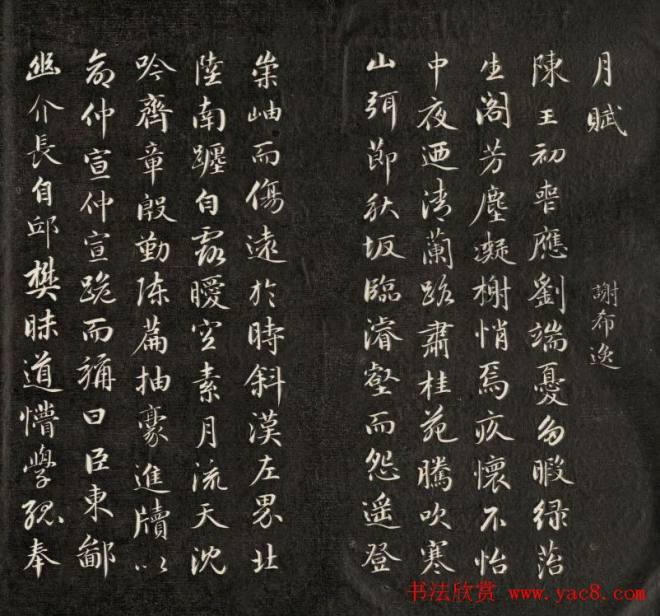 月賦
謝希逸
陳王初喪應劉端憂多暇綠苔
生閣芳塵凝榭悄焉疚懷不怡
中夜迺清蘭路肅桂苑騰吹寒
山弭節秋坂臨濬壑而怨遥登
崇岫而傷遠於時斜漢左界北
陸南躔白露曖空素月流天沈
吟齊章殷勤陳篇抽毫進牘以
命仲宣仲宣跪而稱曰臣東鄙
幽介長自邱樊昧道懵學孤奉
书法欣赏
www.yac8.com